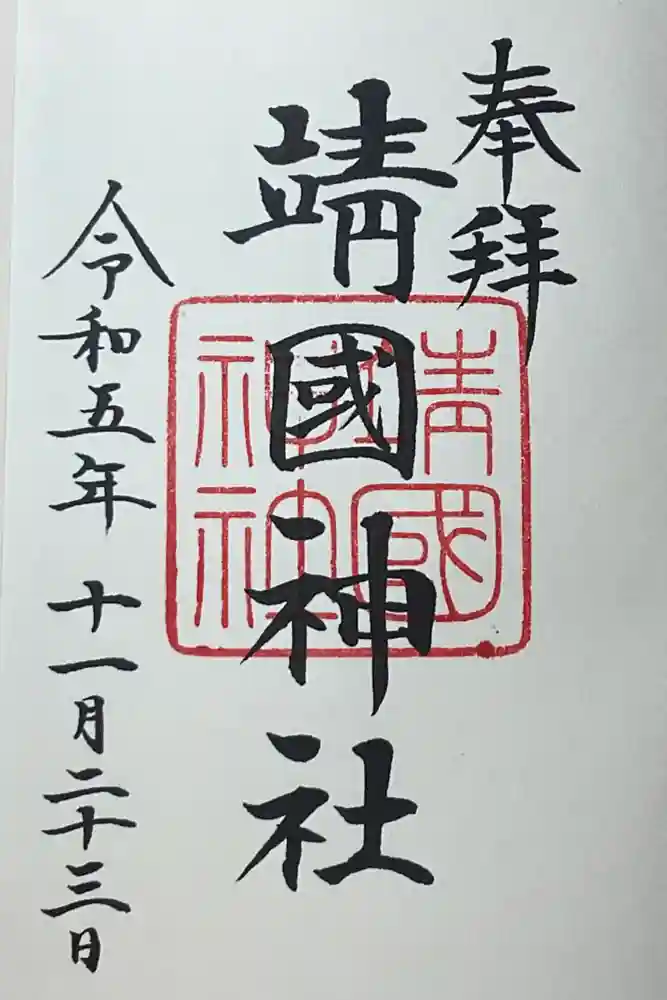 奉拝
靖國神社
靖國神社
令和五年十一月二十三日